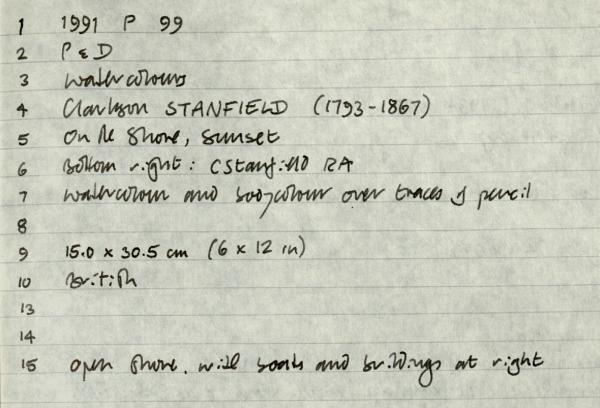 1 1991 P 99
2 P & D
3 watercolours
4 Clarkson STANFIELD (1793-1867)
5 On the Shore, Sunset
6 Bottom right: CStanfield RA
7 watercolour and bodycolour over traces of pencil
8
9 15.0 x 30.5 cm (6 x 12 in)
10 British
13
14
15 open shore, with boats and buildings at right